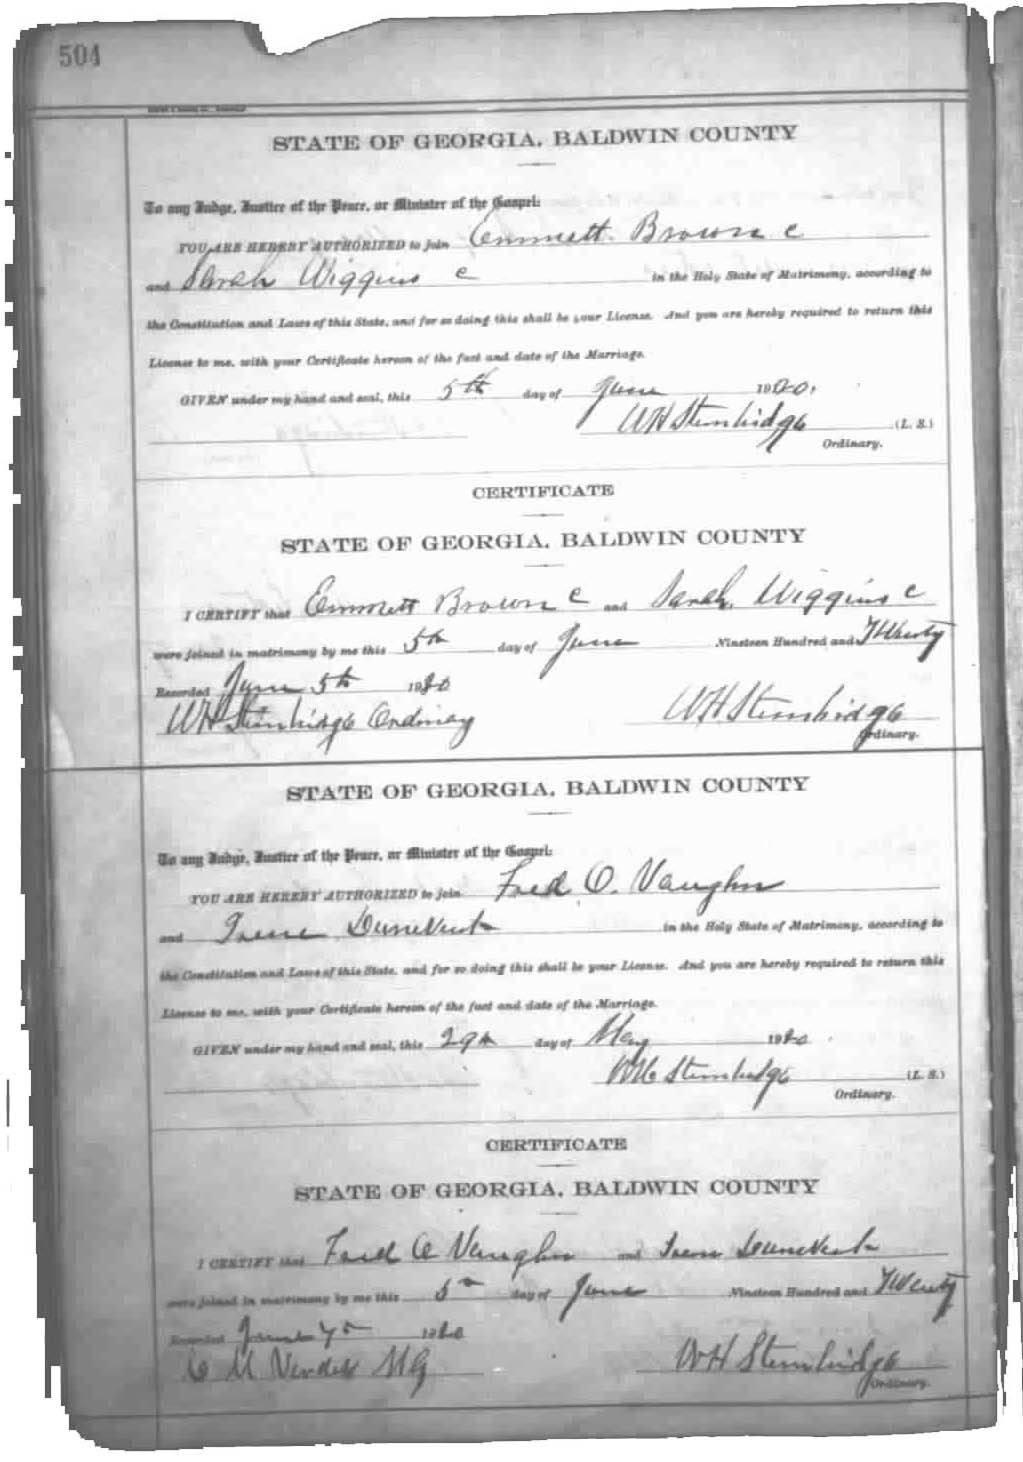 504
STATE OF GEORGIA, BALDWIN COUNTY
To any Judge, Justice of the Peace, or Minister of the Gospel:
YOU ARE HEREBY AUTHORIZED to join Emmett Brown c
and Sarah Wiggins c in the Holy State of Matrimony, according to
the Constitution and Laws of this State, and for so doing this shall be your License. And you are hereby required to return this
License to me, with your Certificate hereon of the fact and date of the Marriage.
GIVEN under my hand and seal, this 5th day of June 1920.
WH Stembridge (L. S.)
Ordinary.
CERTIFICATE
STATE OF GEORGIA, BALDWIN COUNTY
I CERTIFY that Emmett Brown c and Sarah Wiggins c
were joined in matrimony by me this 5th day of June Nineteen Hundred and Twenty
Recorded June 5th 1920
WH Stembridge Ordinary WH Stembridge
Ordinary.
STATE OF GEORGIA, BALDWIN COUNTY
To any Judge, Justice of the Peace, or Minister of the Gospel:
YOU ARE HEREBY AUTHORIZED to join Fred O. Vaughn
and Irene Dunevent in the Holy State of Matrimony, according to
the Constitution and Laws of this State, and for so doing this shall be your License. And you are hereby required to return this
License to me, with your Certificate hereon of the fact and date of the Marriage.
GIVEN under my hand and seal, this 29th day of May 1920
WH Stembridge (L. S.)
Ordinary.
CERTIFICATE
STATE OF GEORGIA, BALDWIN COUNTY
I CERTIFY that Fred O Vaughn and Irene Dunevent
were joined in matrimony by me this 5th day of June Nineteen Hundred and Twenty
Recorded June 7th 1920
M MG WH Stembridge
Ordinary.